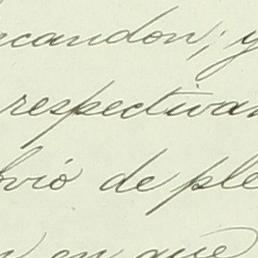 ncandon; y
respectivam
lvió de ple
n en que